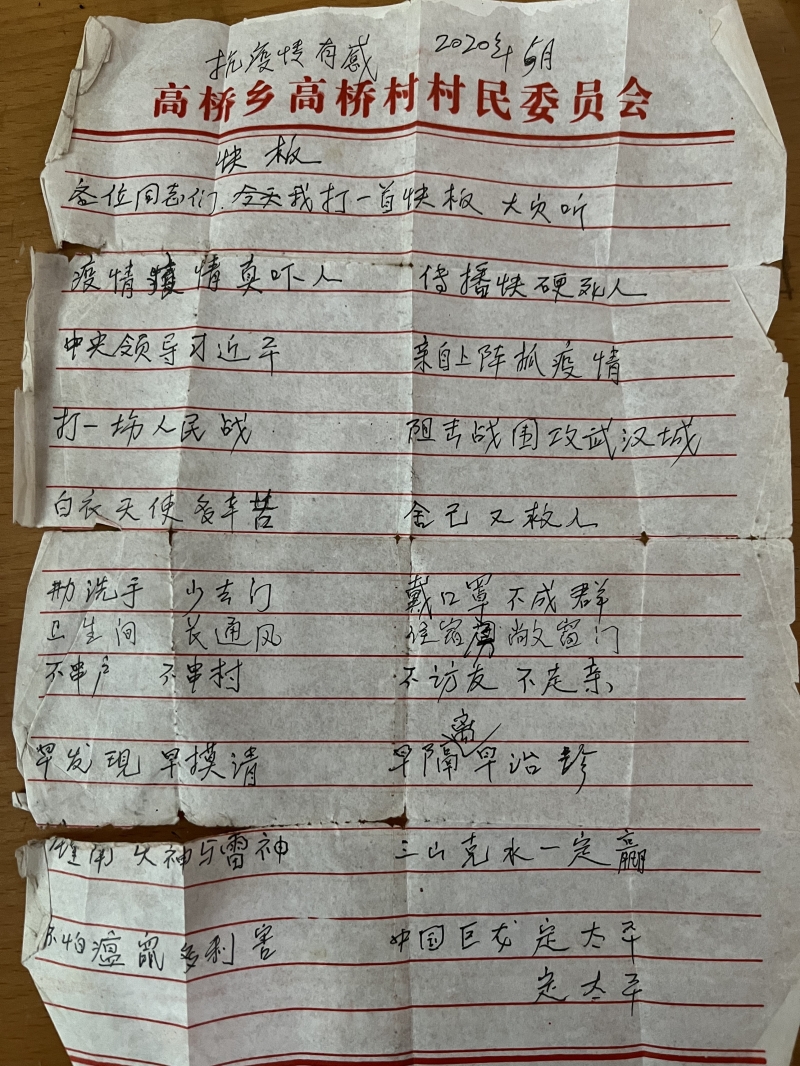 抗疫情有感 2020年5月
高桥乡高桥村村民委员会
快板
各位同志们 今天我打一首快板 大家听
疫情 情真吓人 传播快硬死人
中央领导习近平 亲自上阵抓疫情
打一场人民战 阻击战围攻武汉城
白衣天使多辛苦 舍己又救人
勤洗手 少去门 戴口罩不成群
卫生间 长通风 住宿 敞窗门
不串户 不串村 不访友 不走亲
早发现 早摸清 早隔离早治
火神与雷神 三山克水一定赢
不怕瘟 多利害 中国巨龙定太平
定太平